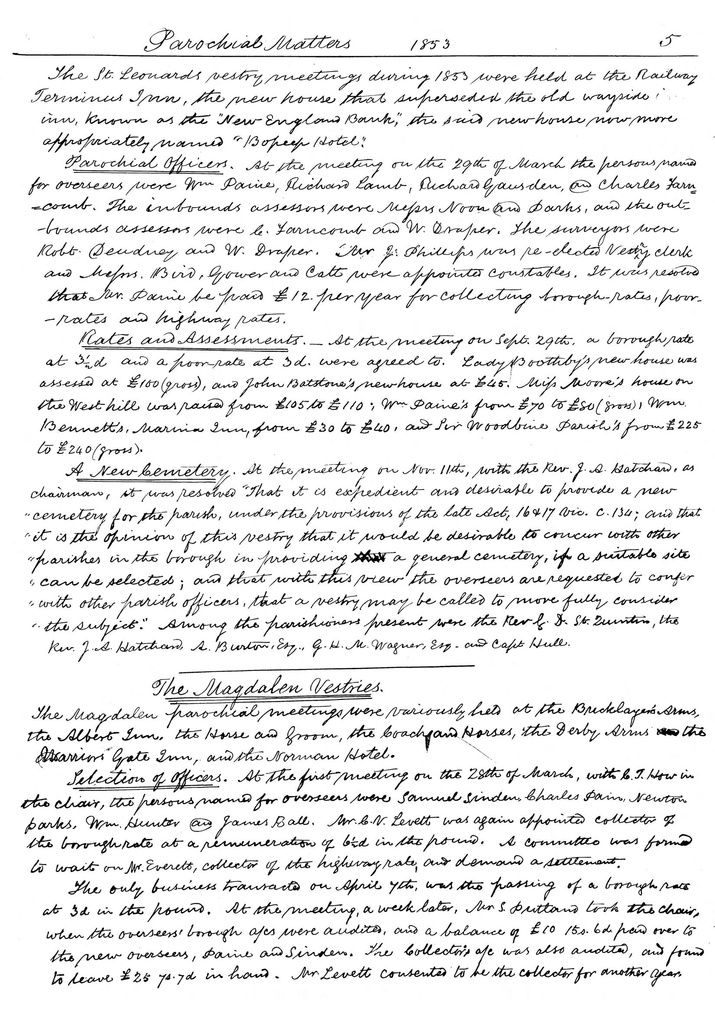 Parochial Matters 1853 5
The St. Leonards vestry meetings during 1853 were held at the Railway
Terminus Inn, the new house that superseded the old wayside
inn, known as the "New England Bank," the said new house, now more
appropriately named "Bopeep Hotel".
Parochial Officers. At the meeting on the 29th of March the persons named
for overseers were Wm Paine, Richard Lamb, Richard Gausden, and Charles Farn-
=comb. The inbounds assessors were Messrs Noon and Parks, and the out-
-bounds assessors were C. Farncomb and W. Draper. The surveyors were
Robt. Deudney and W. Draper. Mr J. Phillips was re-elected Vestry clerk
and Messrs. Bird, Gower and Catt were appointed constables. It was resolved
that Mr. Paine be paid £12 per year for collecting borough-rates, poor-
-rates and highway rates.
Rates and Assessments. — At the meeting on Sept. 29th. a borough rate
at 3½d and a poor-rate at 3d. were agreed to. Lady Boothby's new house was
assessed at £100 (gross), and John Batstone's new house at £45. Miss Moore's house on
the West hill was raised from £105 to £110; Wm Paine's from £70 to £80 (gross), Wm.
Bennett's, Marina Inn, from £30 to £40, and Sir Woodbine Parish's from £225
to £240 (gross).
A New Cemetery. At the meeting on Nov. 11th, with the Rev. J. A. Hatchard, as
chairman, it was resolved "That it is expedient and desirable to provide a new
"cemetery for the parish, under the provisions of the late Act, 16 & 17 Vic. c. 134; and that
"it is the opinion of this vestry that it would be desirable to concur with other
"parishes in the borough in providing a general cemetery, if a suitable site
"can be selected; and that with this view the overseers are requested to confer
"with other parish officers, that a vestry may be called to more fully consider
"the subject." Among the parishioners present were the Rev G. D. St. Quintin, the
Rev. J. A. Hatchard A. Burton, Esq., G. H. M. Wagner, Esq. and Capt Hull.
The Magdalen Vestries.
The Magdalen parochial meetings were variously held at the Bricklayer's Arms,
the Albert Inn, the Horse and Groom, the Coach and Horses, the Derby Arms the
Warriors' Gate Inn, and the Norman Hotel.
Selection of Officers. At the first meeting on the 28th of March, with C. T. How in
the chair, the persons named for overseers were Samuel Sinden, Charles Pain, Newton
Parks, Wm. Hunter and James Ball. Mr. C. V. Levett was again appointed collector of
the borough rate at a remuneration of 6½d in the pound. A committee was formed
to wait on Mr. Everett, collector of the highway rate, and demand a settlement.
The only business transacted on April 7th, was the passing of a borough rate
at 3d in the pound. At the meeting, a week later, Mr S. Putland took the chair,
when the overseers' borough a/cs were audited, and a balance of £10 15s. 6d paid over to
the new overseers, Paine and Sinden. The Collector's a/c was also audited, and found
to leave £25 7s. 7d in hand. Mr Levett consented to be the collector for another year